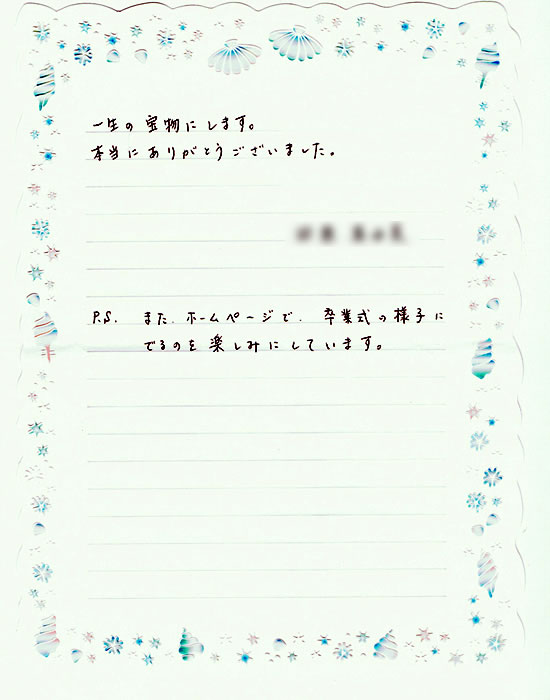 一生の宝物にします。
本当にありがとうございました。
P.S. また、ホームページで、卒業式の様子に
でるのを楽しみにしています。